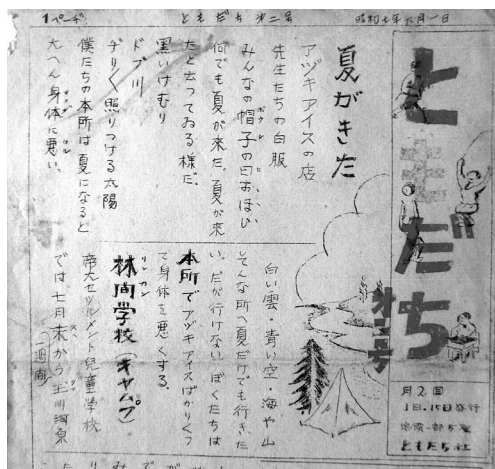 1ページ
ともだち 第二号
昭和七年六月一日
ともだち
第二号
月2回
1日.15日発行
定価一部5厘
ともだち社
夏がきた
アヅキアイスの店
先生たちの白服
みんなの帽子の白おほひ
ボウシ
何でも夏が来た、夏が来
たと云ってゐる様だ。
黒いけむり
ドブ川
ヂリヂリ照りつける太陽
僕たちの本所は夏になると
大へん身体に悪い。
白い雲・青い空・海や山
そんな所へ夏だけでも行きた
い。だが行けない。ぼくたちは
本所でアヅキアイスばかりくつ
て身体を悪くする。
林間学校(キャムプ)
リンカン
帝大セツルメント児童学校
では七月末から玉川河原
一週間